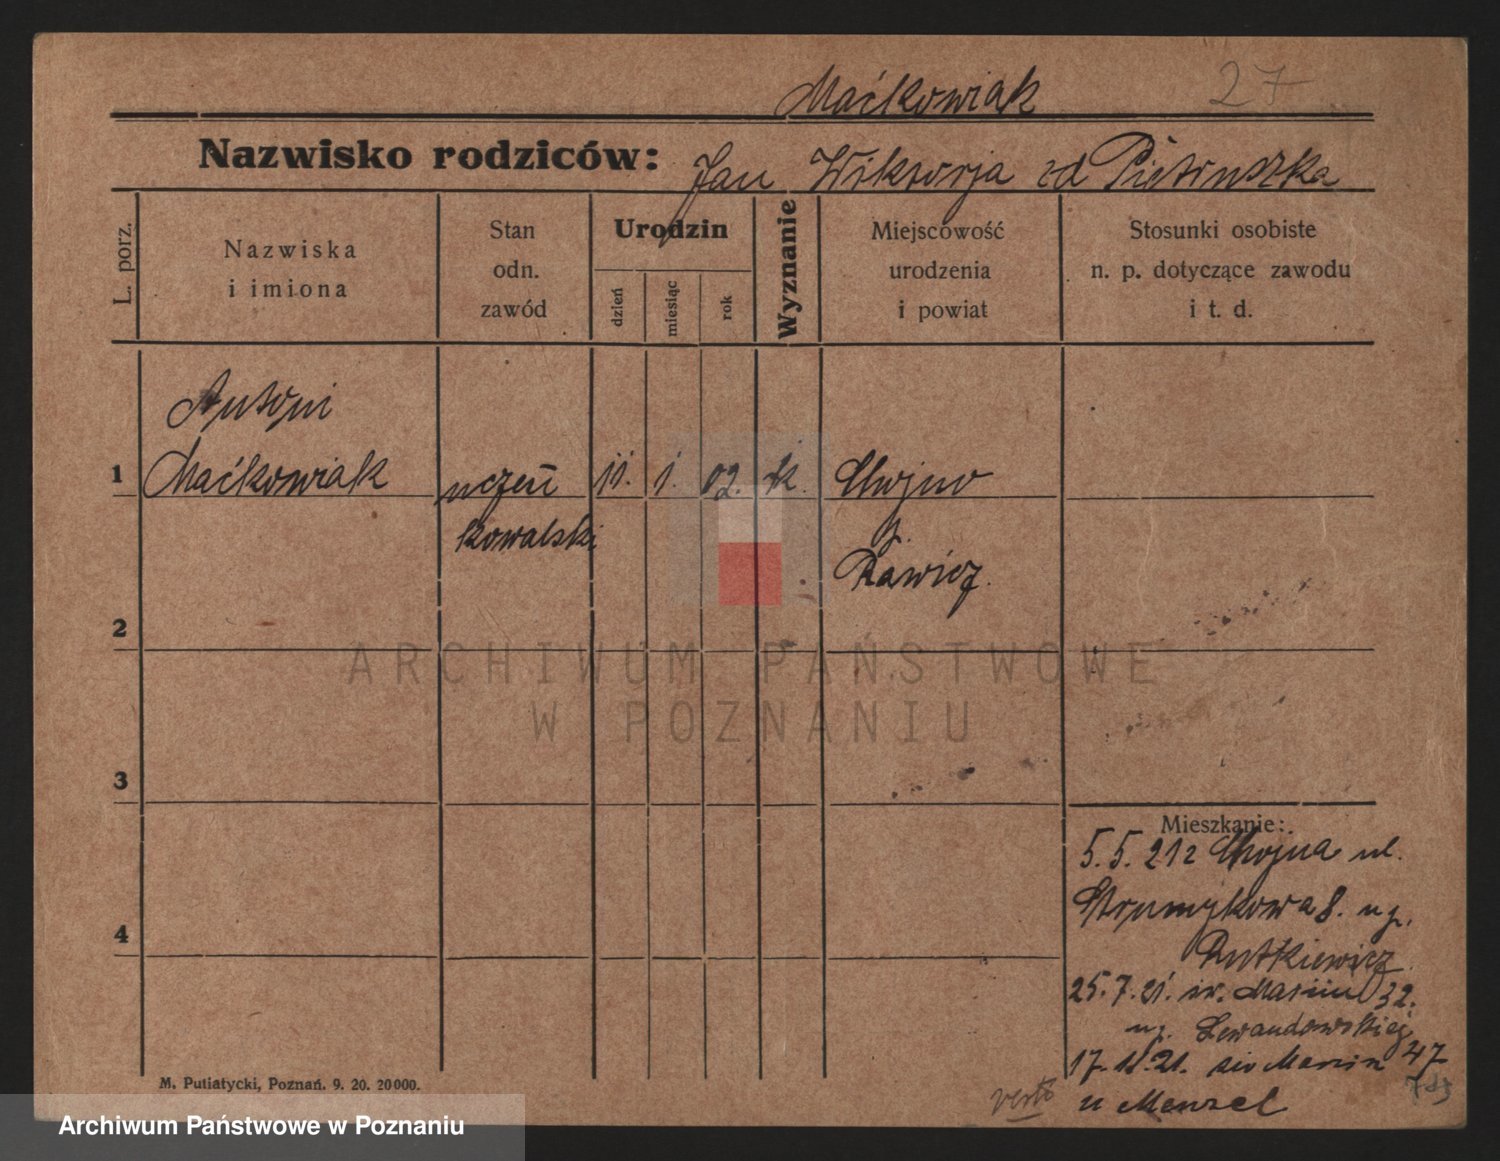 Maćkowiak 27
Nazwisko rodziców: Jan Wiktorja od Pietruszka
L. porz.
Nazwiska
i imiona
Stan
odn.
zawód
Urodzin
dzień
miesiąc
rok
Wyznanie
Miejscowość
urodzenia
i powiat
Stosunki osobiste
n. p. dotyczące zawodu
i t. d.
Antoni
1 Maćkowiak uczeń 11. 1. 02. k. Chojno
kowalski
Rawicz.
2
3
4
ARCHIWUM PAŃSTWOWE
W POZNANIU
Mieszkanie:
5.5.21 z Chojna ul.
8.
Rutkiewicz
25.7.21. św. Marcin 32.
Lewandowskiej
17. 21. św Marcin 47
u Menzel
verte
M. Putiatycki, Poznań. 9. 20. 20000.
Archiwum Państwowe w Poznaniu